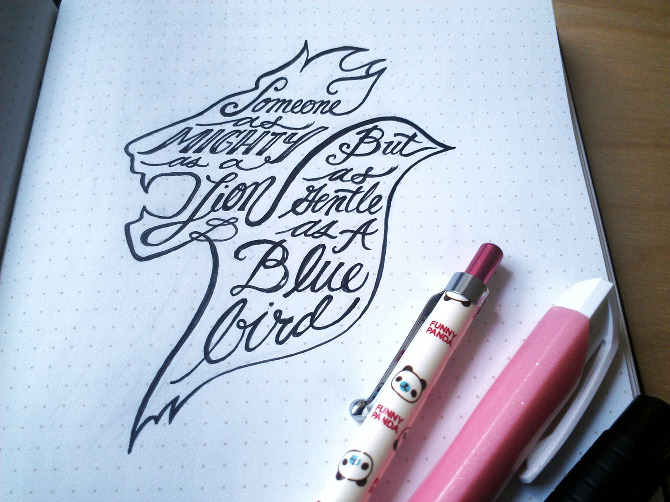 Someone
as
MIGHTY
as a
Lion
But
as
gentle
as A
Blue
bird
FUNNY
PANDA
FUNNY
PANDA